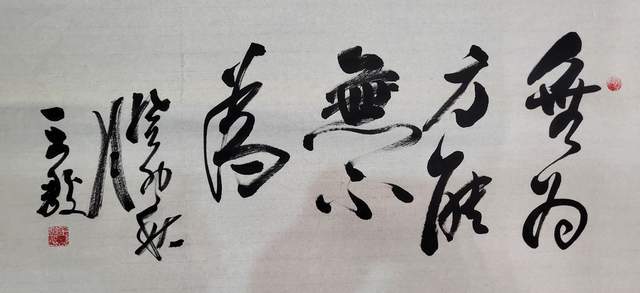 無为
方能
無不
為
癸卯秋
月
王毅